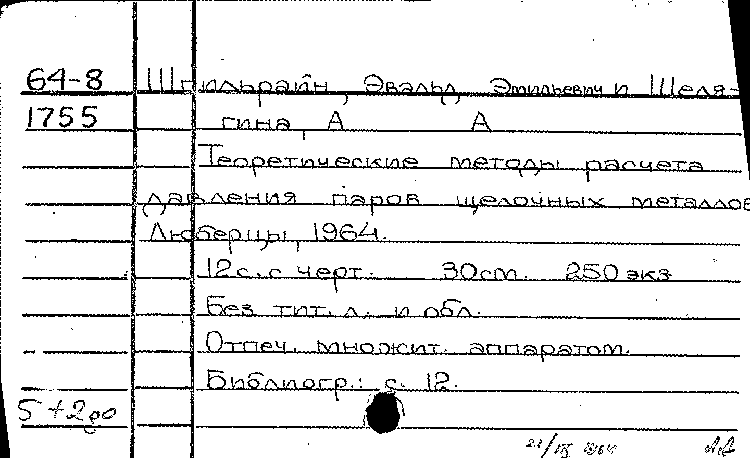 64-8 Шпильрайн, Эвальд Эмильевич и Шеля-
1755 гина, А А
Теоретические методы расчета
давления паров щелочных металлов
Люберцы, 1964.
12с. с черт. 30см. 250 экз
Без тит. л. и обл.
Отпеч. множит. аппаратом.
Библиогр.: с. 12.
5+2